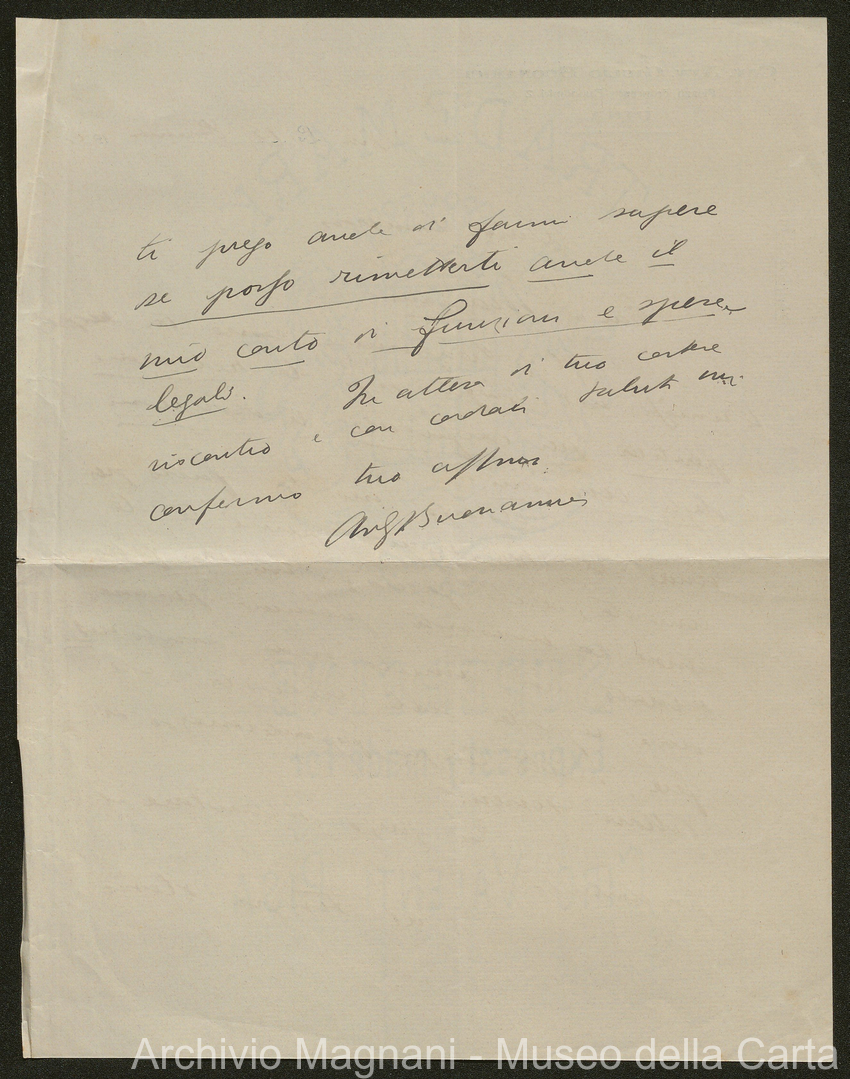 ti prego anche di farmi sapere
se posso rimetterti anche il
mio conto di funzioni e spese
legali. In attesa di tuo cortese
riscontro e con cordiali saluti mi
confermo tuo aff.mo
Buonamici
Archivio Magnani - Museo della Carta